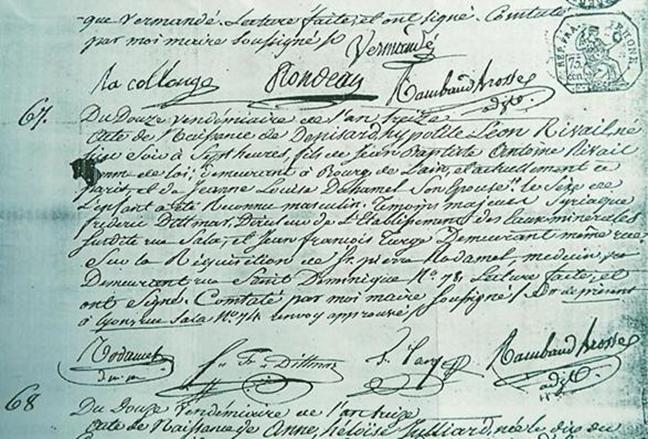 que Vermandé. Lecture faite, et ont signé. Constaté
par moi maire soussigné
Vermandé
la collonge Rondeau Rambaud
adjt.
REP. FRA RHONE
75
67. Du Douze Vendémiaire de l'an treize
acte de Naissance de Denisard, hypolite Léon Rivail, né
hier soir à Sept heures, fils de Jean Baptiste Antoine Rivail
homme de loi, demeurant à Bourg de l'ain, et actuellement à
Paris, et de Jeanne Louise Duhamel Son épouse. le Sexe de
L'enfant a été Reconnu masculin. Temoins majeurs Syriaque
frederic Dittmar, Directeur de L'Etablissement des Eaux minerales
Susdite rue Sala, et Jean françois Targe Demeurant même rue
Sur la Réquisition de pierre Radamel, medecin,
Demeurant rue Saint Dominique N.º 78. Lecture faite, et
ont Signé. Constaté par moi maire soussigné
à lyon, rue Sala N.º 74 renvoy approuvé
Radamel Dittmar Targe Rambaud
adjt.
68 Du Douze Vendémiaire de l'an treize
acte de Naissance de Anne, héloïse Julliard, née le dix du